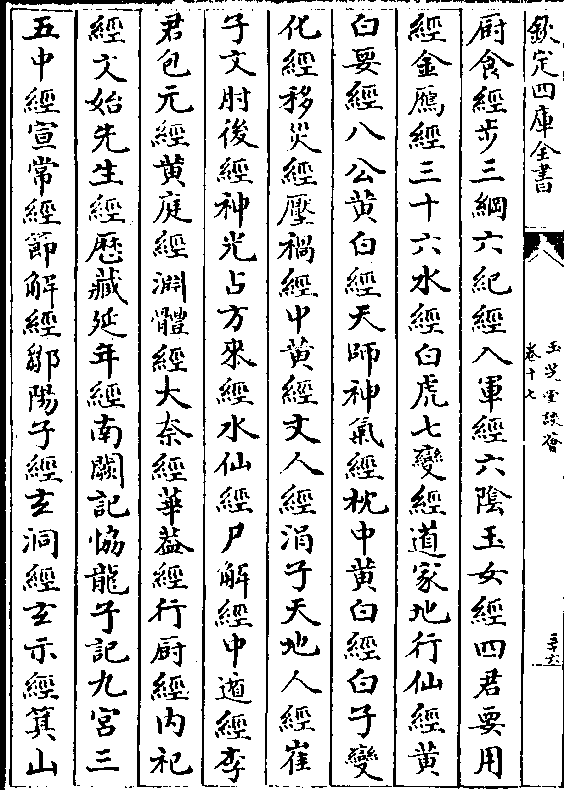 欽定四庫全書
玉芝堂談薈
卷十七
三十六
厨食經步三綱六紀經入軍經六陰玉女經四君要用
經金鴈經三十六水經白虎七變經道家地行仙經黄
白要經八公黄白經天師神氣經枕中黄白經白子變
化經移災經壓禍經中黄經丈人經涓子天地人經崔
子文肘後經神光占方來經水仙經尸解經中遁經李
君包元經黄庭經淵體經大柰經華葢經行厨經内祀
經文始先生經歴藏延年經南闕記恊龍子記九宫三
五中經宣常經節解經鄒陽子經玄洞經玄示經箕山